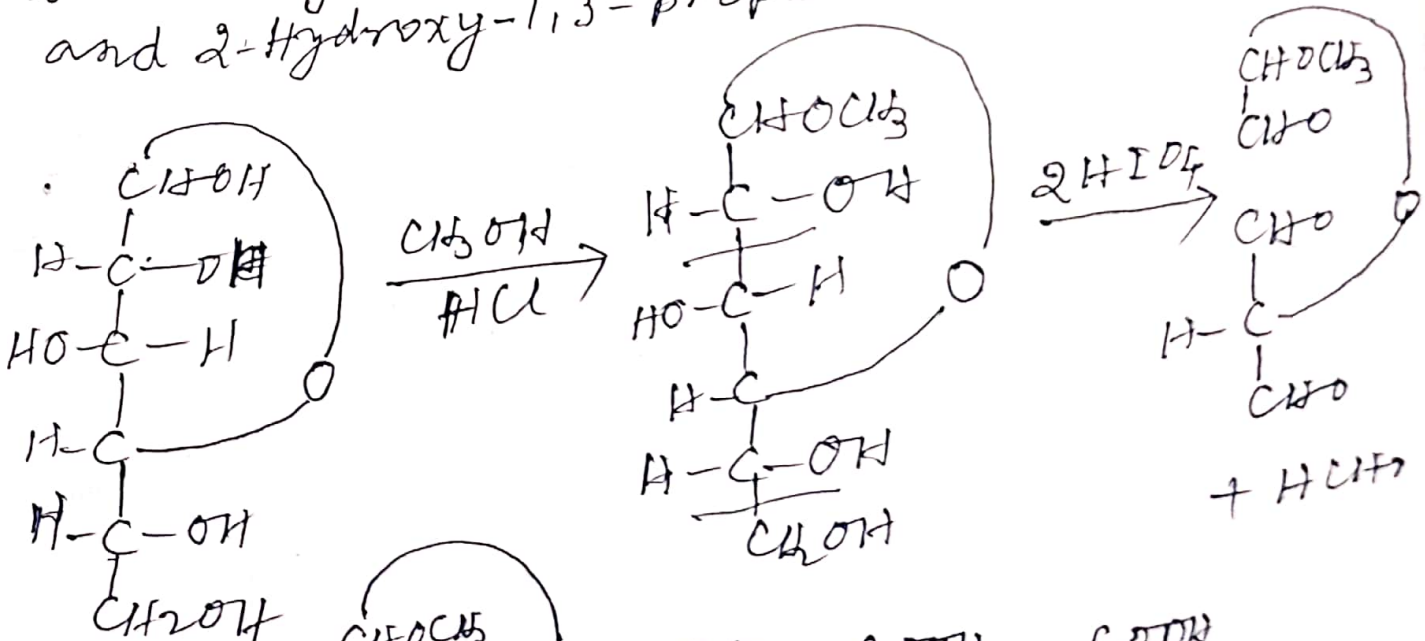 and 2-Hydroxy-1,3-prop
CHOH
H-C-OH
HO-C-H
H-C
O
H-C-OH
CH2OH
CH3OH
HCl
CHOCH3
H-C-OH
HO-C-H
O
H-C
H-C-OH
CH2OH
2HIO4
CHOCH3
CHO
CHO
O
H-C
CHO
+ HCHO
CHOCH3
COOH